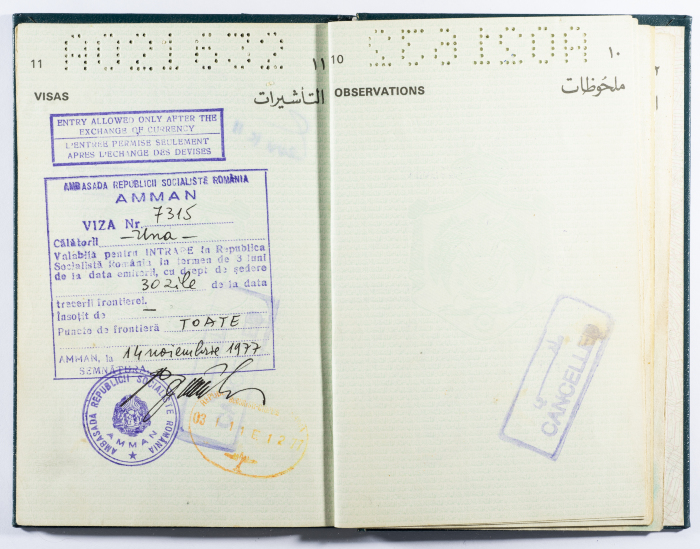 A021632
11 ١١
VISAS التأشيرات
ENTRY ALLOWED ONLY AFTER THE
EXCHANGE OF CURRENCY
L'ENTREE PERMISE SEULEMENT
APRES L'ECHANGE DES DEVISES
AMBASADA REPUBLICII SOCIALISTE ROMÂNIA
AMMAN
VIZA Nr. 7315
Călătorii - Una -
Valabilă pentru INTRARE în Republica
Socialistă România în termen de 3 luni
de la data emiterii, cu drept de ședere
30 zile de la data
trecerii frontierei.
Însoțit de —
Puncte de frontieră TOATE
AMMAN, la 14 noiembrie 1977
SEMNĂTURA
AMBASADA REPUBLICII SOCIALISTE ROMÂNIA
AMMAN
03
10 ١٠
OBSERVATIONS ملحوظات
CANCELLED
٢